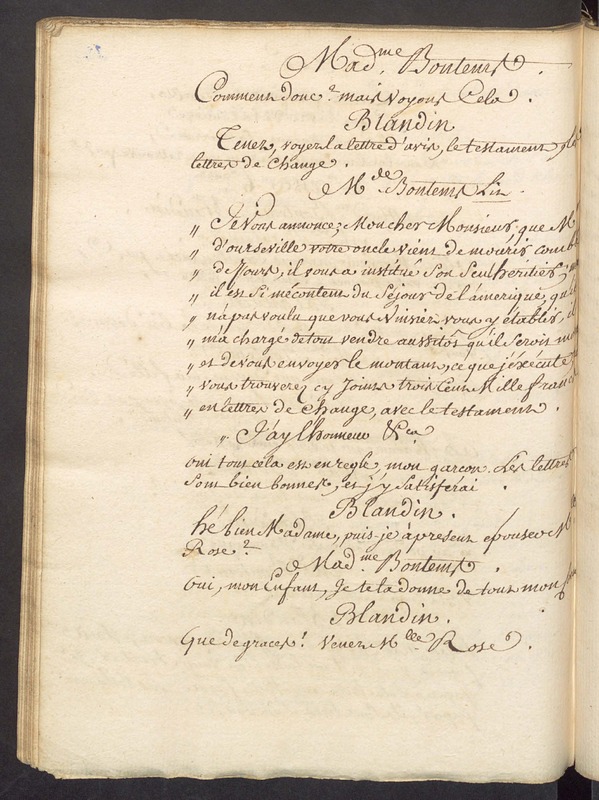 Mad.me Bontems.
Comment donc? mais voyons Cela.
Blandin
Tenez, voyez la lettre d'avis, le testament, les
lettres de Change.
M.de Bontems Lit
,, Je Vous annonce, Mon cher Monsieur, que M.
,, d'ourseville votre oncle vient de mourir comblé
,, de Jours, il vous a institué Son Seul héritier;
,, il est Si mécontent du Séjour de l'amerique, qu'il
,, n'a pas voulu que vous Vinssiez vous y établir, il
,, m'a chargé de tout vendre aussitôt qu'il Seroit mort
,, et de vous envoyer le montant, ce que j'éxécute
,, Vous trouverez cy Joint trois Cent Mille francs
,, en lettres de Change, avec le testament.
,, J'ay l'honneur &ca
oui tout cela est en regle, mon garçon. Les lettres
Sont bien bonnes, et j'y Satisferai.
Blandin.
hé bien Madame, puis-je àpresent epouser M
Rose?
Mad.me Bontems.
Oui, mon Enfant, Je te la donne de tout mon
Blandin.
Que de graces! Venez Mlle Rose.